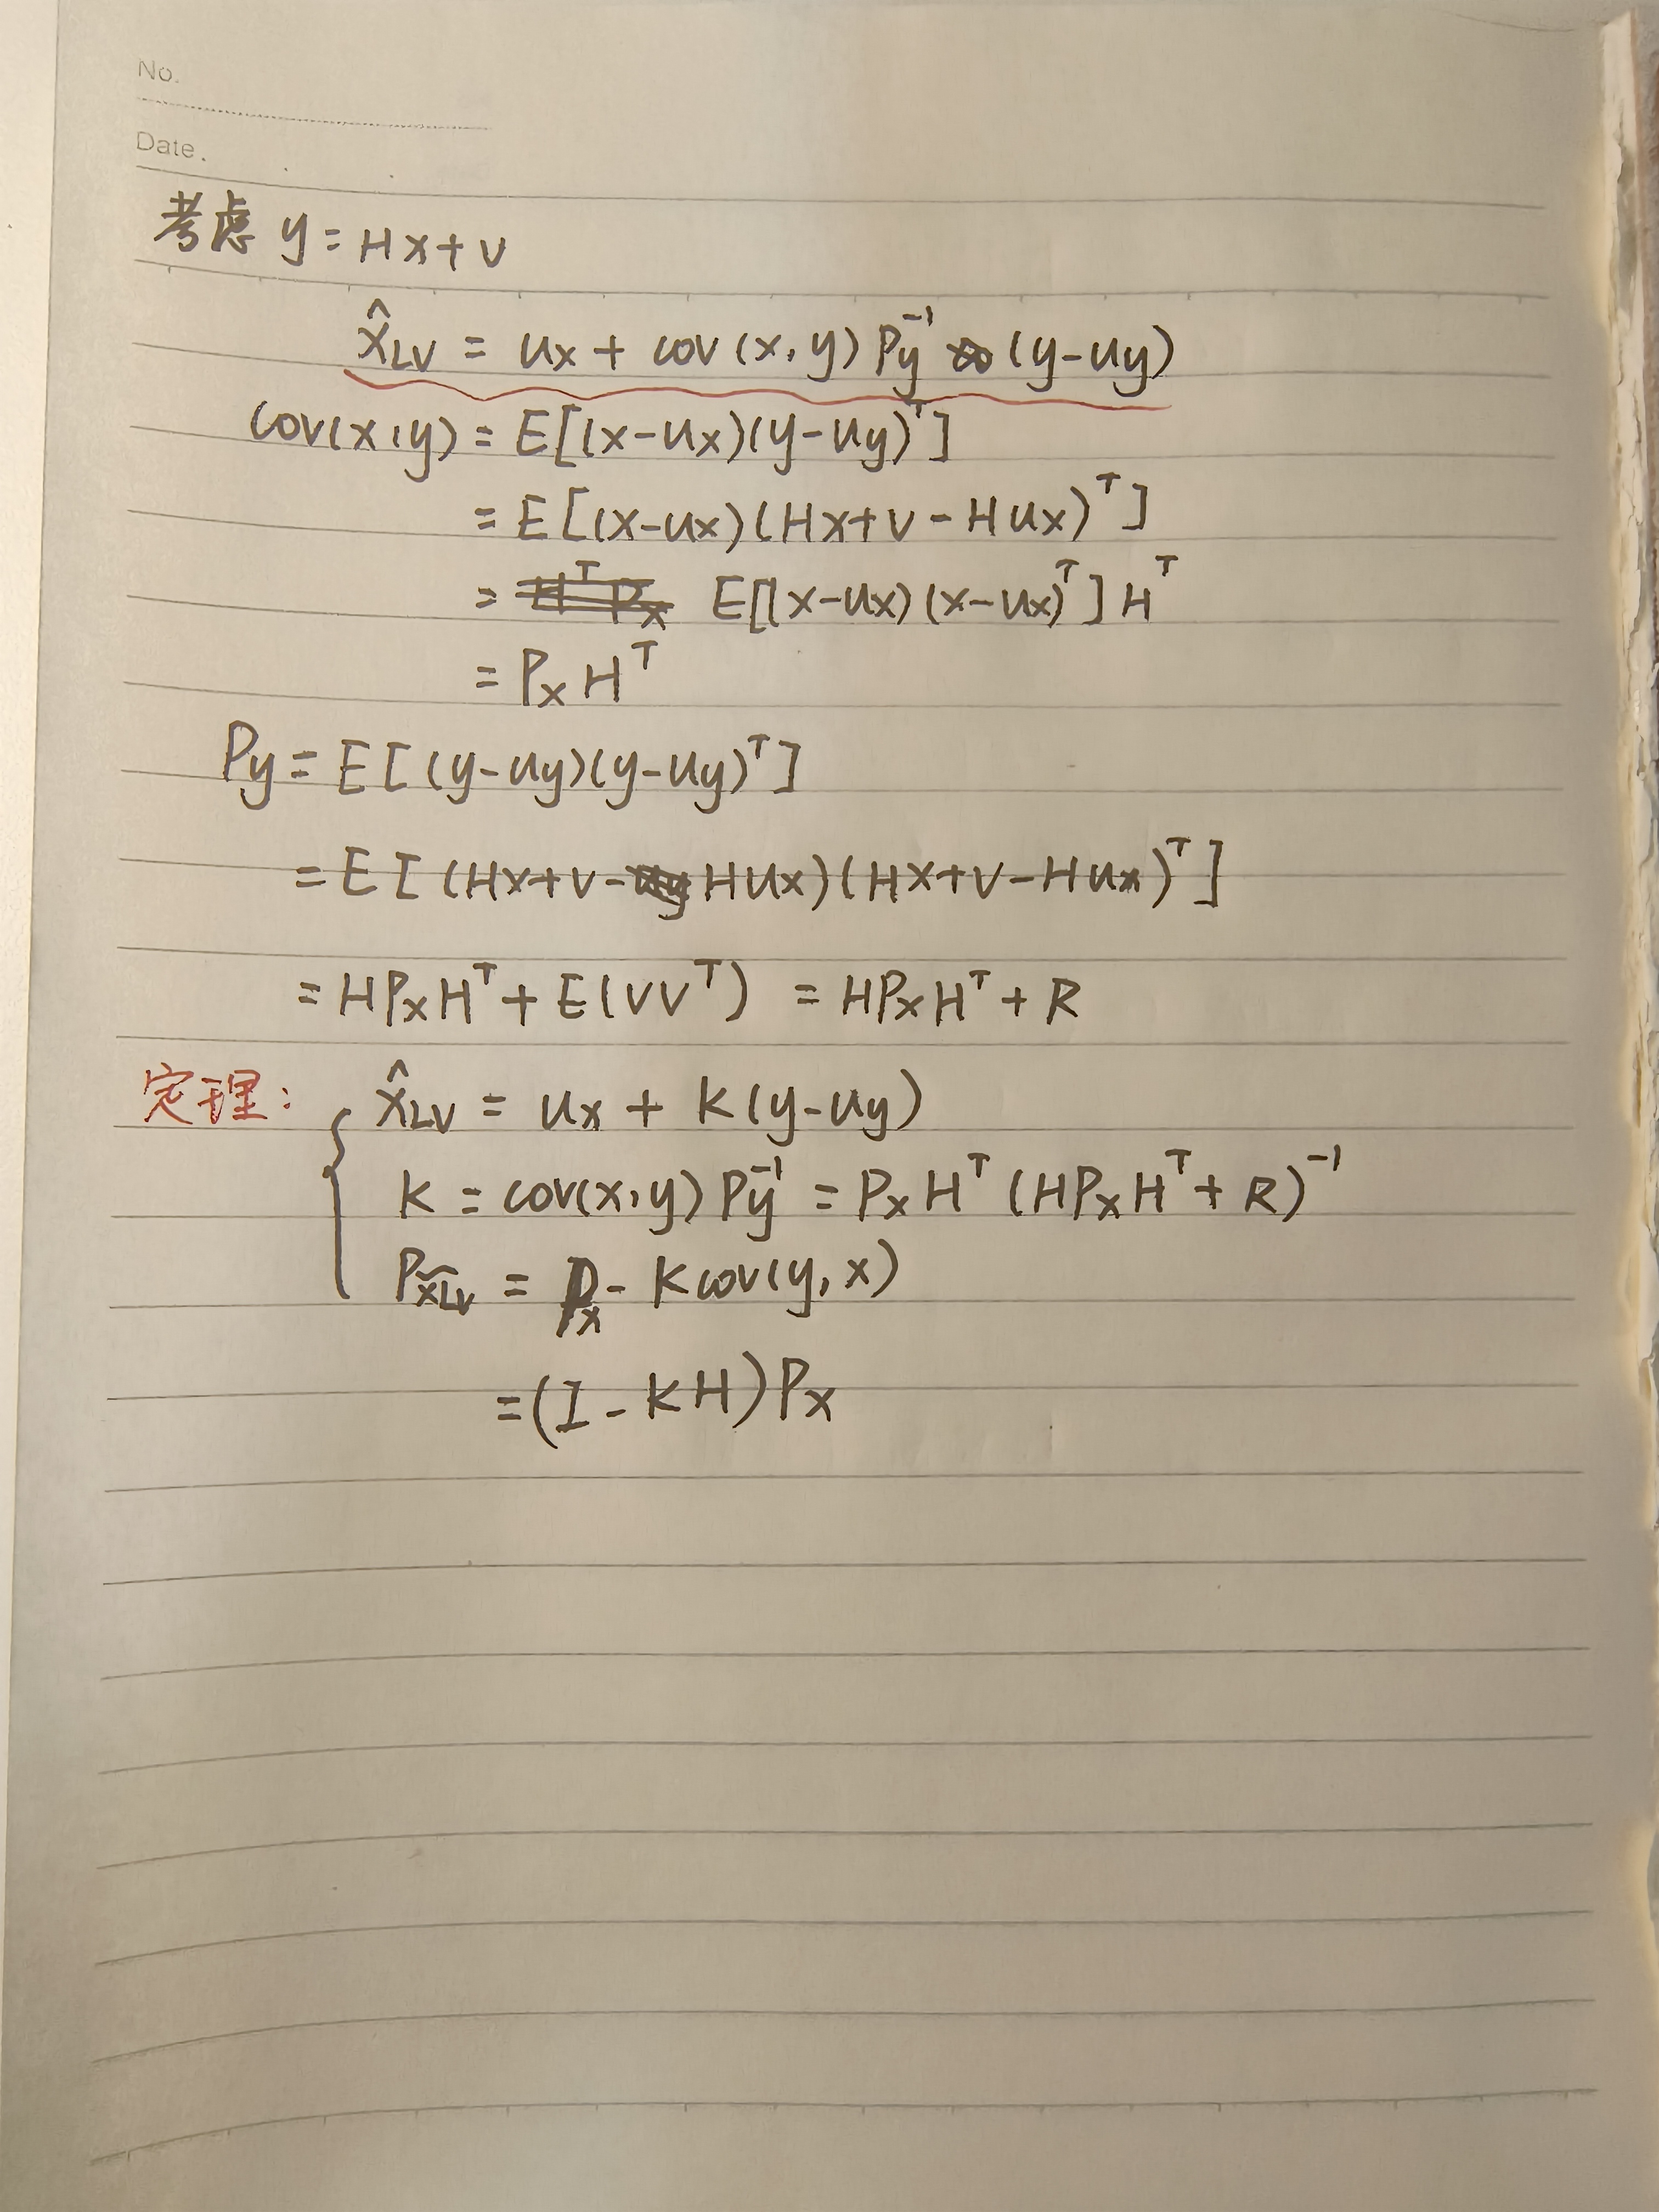 No.
Date.
考虑 y = Hx + v
x̂_LV = u_x + cov(x, y) P_y^{-1} (y - u_y)
cov(x, y) = E[(x - u_x)(y - u_y)^T]
= E[(x - u_x)(Hx + v - Hu_x)^T]
= E[(x - u_x)(x - u_x)^T] H^T
= P_x H^T
P_y = E[(y - u_y)(y - u_y)^T]
= E[(Hx + v - Hu_x)(Hx + v - Hu_x)^T]
= HP_x H^T + E(vv^T) = HP_x H^T + R
定理: x̂_LV = u_x + K(y - u_y)
K = cov(x, y) P_y^{-1} = P_x H^T (HP_x H^T + R)^{-1}
P_x̃_LV = P_x - K cov(y, x)
= (I - KH)P_x